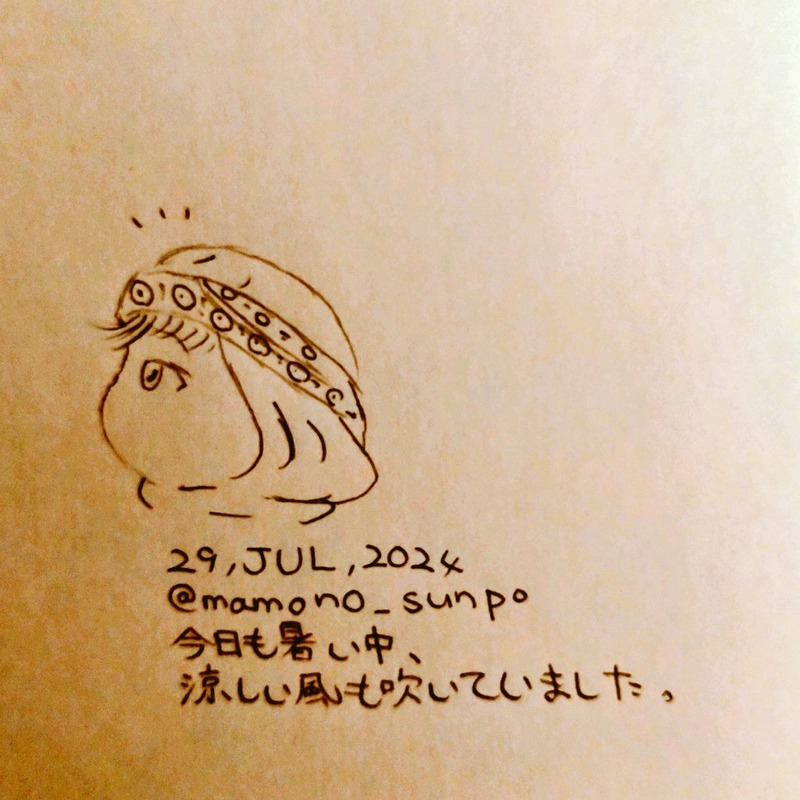 29,JUL,2024
@mamono_sunpo
今日も暑い中、
涼しい風も吹いていました。